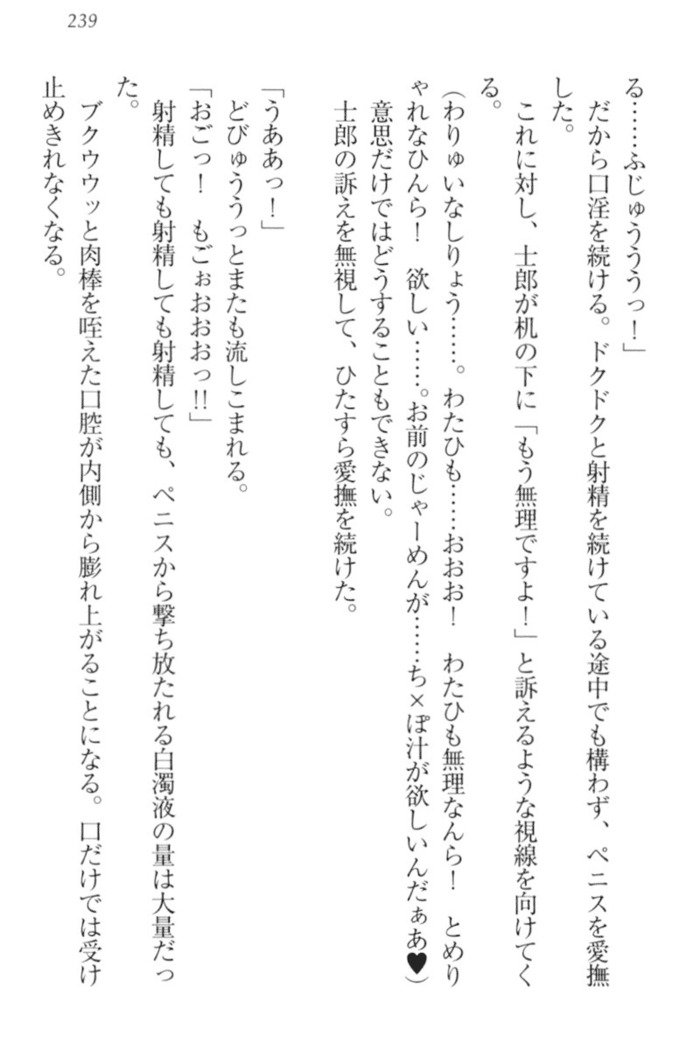 239
る……ふじゅううっ！」
だから口淫を続ける。ドクドクと射精を続けている途中でも構わず、ペニスを愛撫
した。
これに対し、士郎が机の下に「もう無理ですよ！」と訴えるような視線を向けてく
る。
（わりゅいなしりょう……。わたひも……おおお！　わたひも無理なんら！　とめり
ゃれなひんら！　欲しい……。お前のじゃーめんが……ち×ぽ汁が欲しいんだぁあ♥）
意思だけではどうすることもできない。
士郎の訴えを無視して、ひたすら愛撫を続けた。
「うああっ！」
どびゅううっとまたも流しこまれる。
「おごっ！　もごぉおおおっ!!」
射精しても射精しても、ペニスから撃ち放たれる白濁液の量は大量だっ
た。
ブクウウッと肉棒を咥えた口腔が内側から膨れ上がることになる。口だけでは受け
止めきれなくなる。